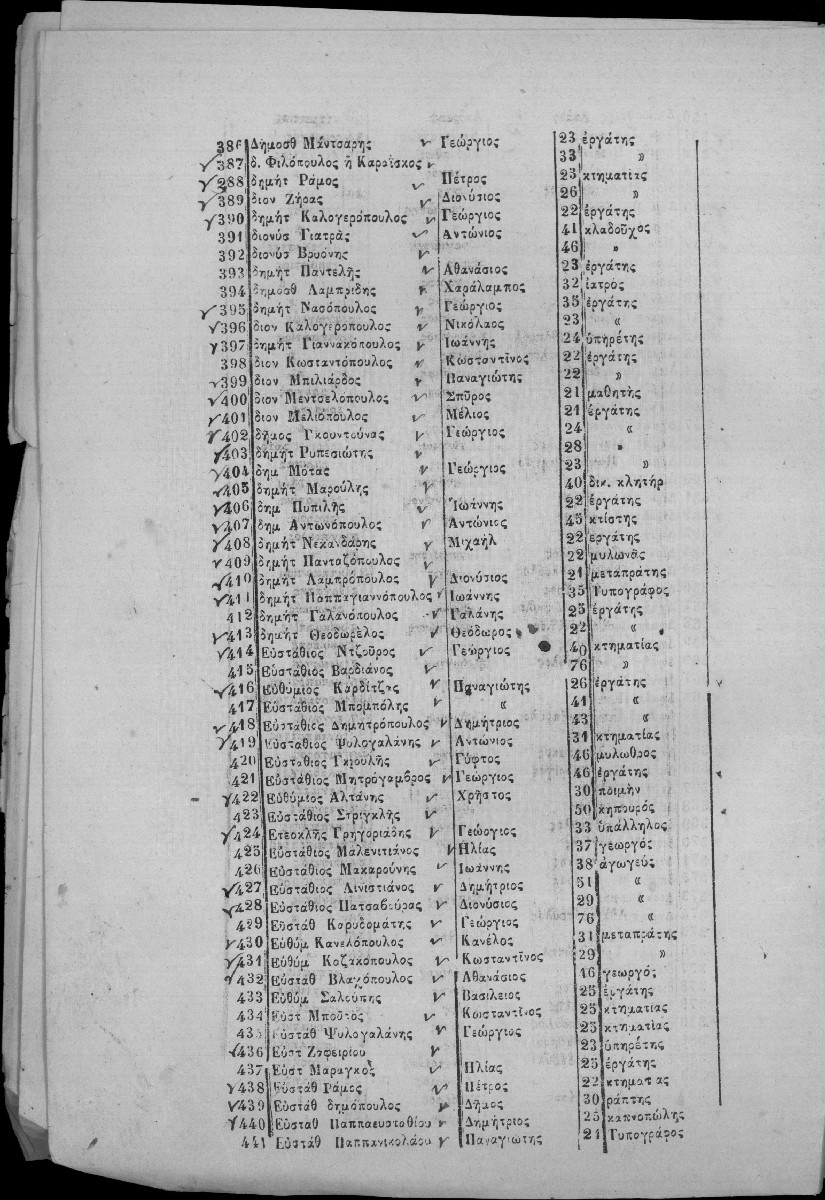 386 Δημοσθ Μάντσαρης Γεώργιος 23 ἐργάτης
387 δ. Φιλόπουλος ἢ Καραΐσκος 33 »
388 δημήτ Ράμος Πέτρος 23 κτηματίας
389 διον Ζήρας Διονύσιος 26 »
390 δημήτ Καλογερόπουλος Γεώργιος 22 ἐργάτης
391 διονύσ Γιατρᾶς Ἀντώνιος 41 κλαδοῦχος
392 διονύσ Βρυόνης 46 »
393 δημήτ Παντελῆς Ἀθανάσιος 23 ἐργάτης
394 δημοσθ Λαμπρίδης Χαράλαμπος 32 ἰατρός
395 δημήτ Νασόπουλος Γεώργιος 35 ἐργάτης
396 διον Καλογερόπουλος Νικόλαος 23 «
397 δημήτ Γιαννακόπουλος Ἰωάννης 24 ὑπηρέτης
398 διον Κωσταντόπουλος Κωσταντῖνος 22 ἐργάτης
399 διον Μπιλιάρδος Παναγιώτης 22 »
400 διον Μεντσελοπουλος Σπῦρος 21 μαθητὴς
401 διον Μελιόπουλος Μέλιος 21 ἐργάτης
402 δῆμος Γκουντούνας Γεώργιος 24 «
403 δημήτ Ρυπεσιώτης 28 »
404 δημ Μότας Γεώργιος 23 »
405 δημήτ Μαρούλης 40 δικ. κλητήρ
406 δημ Πυπιλῆς Ἰωάννης 22 ἐργάτης
407 δημ Αντωνόπουλος Ἀντώνιος 45 κτίστης
408 δημήτ Νεκανδάρης Μιχαὴλ 22 ἐργάτης
409 δημήτ Πανταζόπουλος 22 μυλωνᾶς
410 δημήτ Λαμπρόπουλος Διονύσιος 21 μεταπράτης
411 δημήτ Παππαγιαννόπουλος Ἰωάννης 35 Τυπογράφος
412 δημήτ Γαλανόπουλος Γαλάνης 25 ἐργάτης
413 δημήτ Θεοδωρέλος Θεόδωρος 22 «
414 Εὐστάθιος Ντζοῦρος Γεώργιος 40 κτηματίας
415 Εὐστάθιος Βαρδιάνος 76 »
416 Εὐθύμιος Καρδίτζας Παναγιώτης 26 ἐργάτης
417 Εὐστάθιος Μπομπόλης « 41 «
418 Εὐστάθιος Δημητρόπουλος Δημήτριος 43 «
419 Εὐστάθιος Ψυλογαλάνης Αντώνιος 31 κτηματίας
420 Εὐστάθιος Γκιουλῆς Γύφτος 46 μυλωθρος
421 Εὐστάθιος Μητρόγαμβρος Γεώργιος 46 ἐργάτης
422 Εὐθύμιος Αλτάνης Χρῆστος 30 ποιμὴν
423 Εὐστάθιος Στριγκλῆς 50 κηπουρός
424 Ετεοκλῆς Γρηγοριάδης Γεώργιος 33 ὑπάλληλος
425 Εὐστάθιος Μαλενιτιάνος Ηλίας 37 γεωργός
426 Εὐστάθιος Μακαρούνης Ἰωάννης 38 ἀγωγεύς
427 Εὐστάθιος Λινιστιάνος Δημήτριος 51 «
428 Εὐστάθιος Πατσαβούρας Διονύσιος 29 «
429 Εὐστάθ Καρυδομάτης Γεώργιος 76 «
430 Εὐθύμ Κανελόπουλος Κανέλος 31 μεταπράτης
431 Εὐθύμ Κοζακόπουλος Κωσταντῖνος 29 »
432 Εὐστάθ Βλαχόπουλος Αθανάσιος 46 γεωργός
433 Εὐθύμ Σαλούπης Βασίλειος 25 ἐργάτης
434 Εὐστ Μποῦτος Κωσταντῖνος 25 κτηματίας
435 Εὐστάθ Ψυλογαλάνης Γεώργιος 25 κτηματίας
436 Εὐστ Ζαφειρίου 23 ὑπηρέτης
437 Εὐστ Μαραγκος Ηλίας 25 ἐργάτης
438 Εὐστάθ Ράμος Πέτρος 22 κτηματίας
439 Εὐστάθ δημόπουλος Δῆμος 30 ράπτης
440 Εὐσταθ Παππαευσταθίου Δημήτριος 25 καπνοπώλης
441 Εὐστάθ Παππανικολάου Παναγιώτης 21 Τυπογράφος